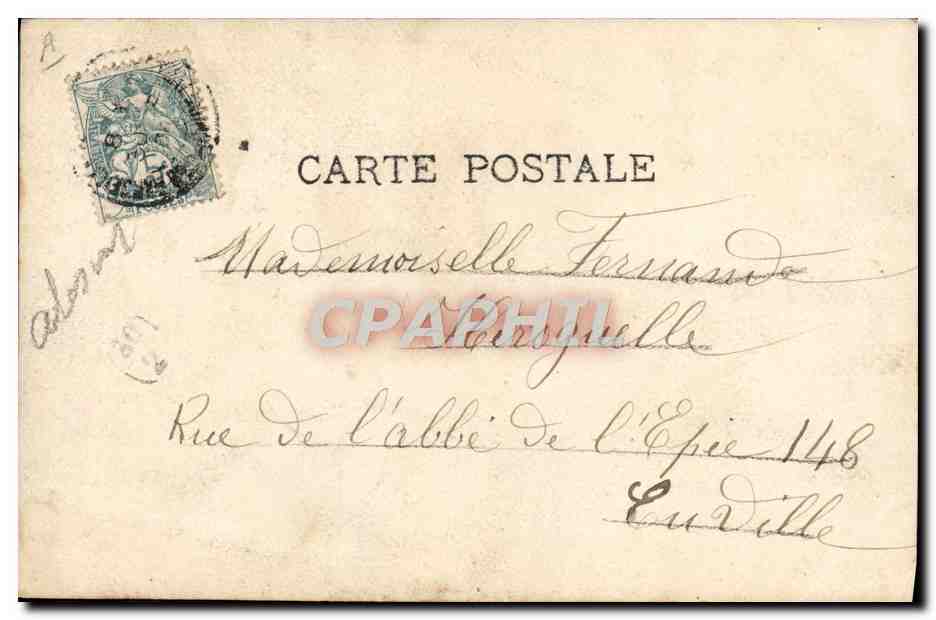 A
CARTE POSTALE
Mademoiselle Fernande
CPAPHIL
Rue de l'abbé de l'Epée 148
En Ville